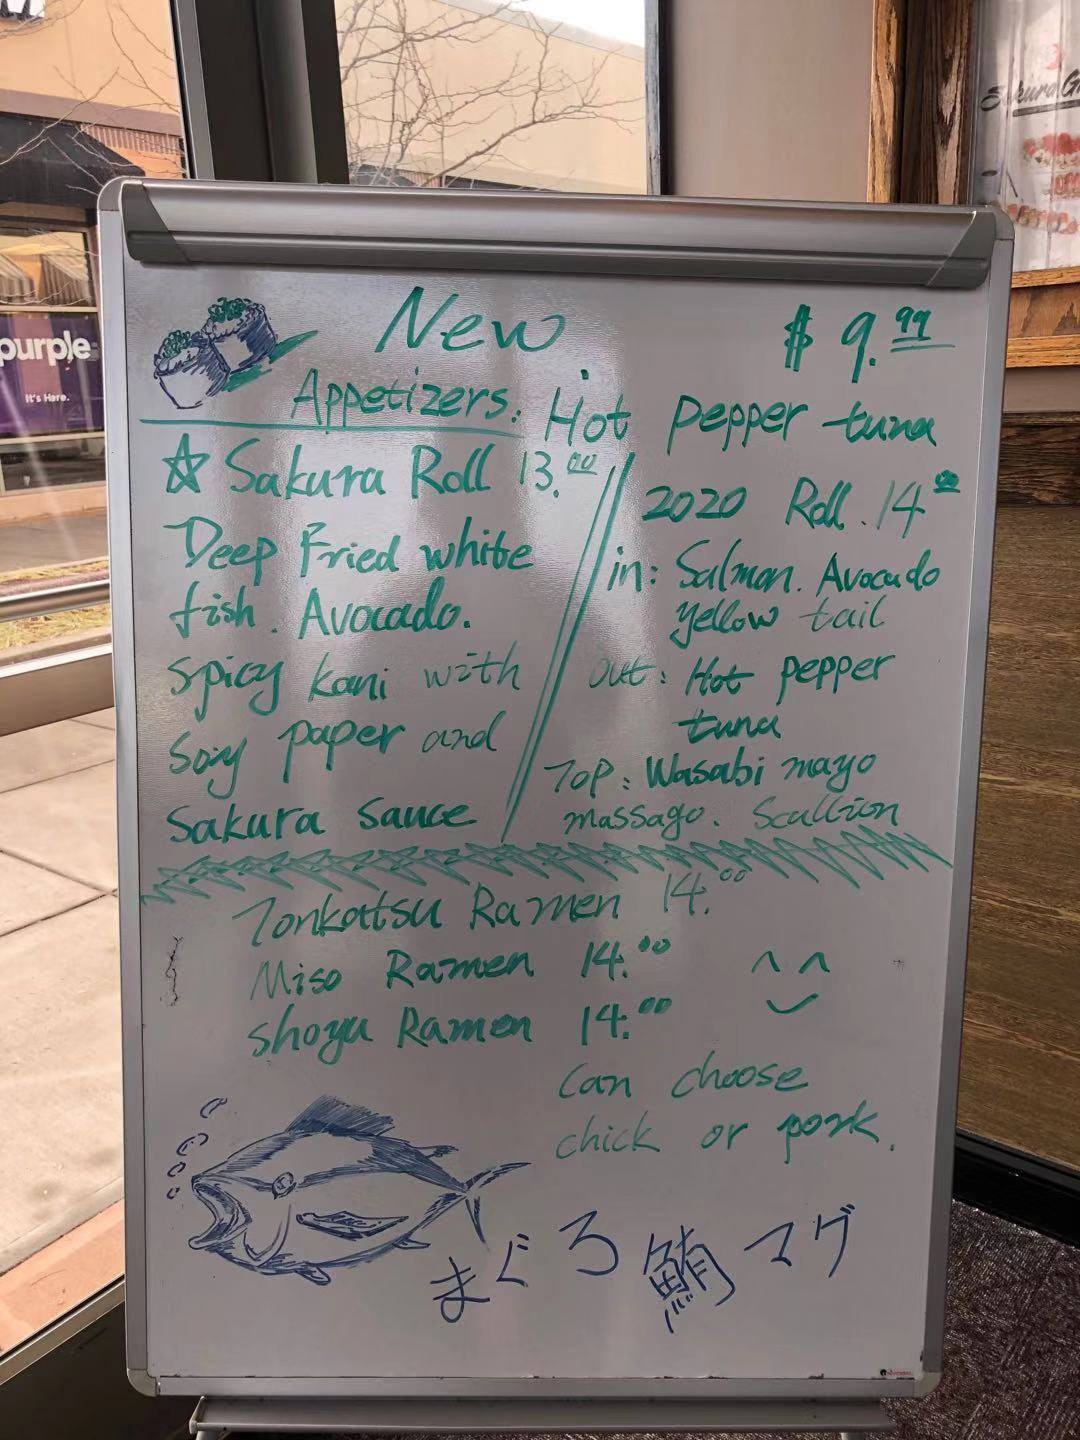 New
$ 9.99
Appetizers: Hot pepper tuna
☆ Sakura Roll 13.00
Deep Fried white
fish. Avocado.
Spicy kani with
Soy paper and
Sakura sauce
2020 Roll. 14.00
in: Salmon. Avocado
yellow tail
out: Hot pepper
tuna
Top: Wasabi mayo
massago. Scallion
Tonkatsu Ramen 14.00
Miso Ramen 14.00
Shoyu Ramen 14.00
Can choose
chick or pork.
まぐろ 鮪 マグ
purple
It's Here.